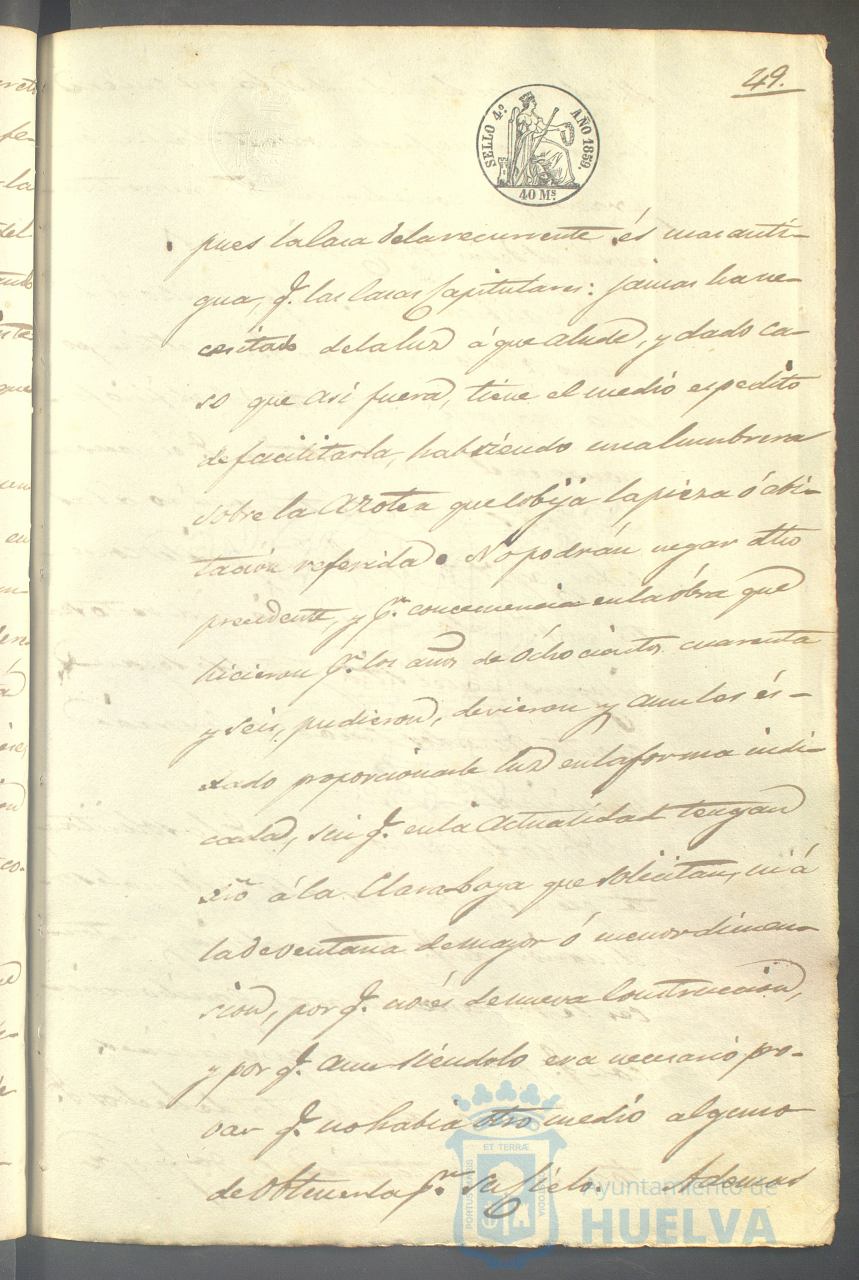 49.
SELLO 4º AÑO 1859.
40 Ms.
pues la Casa de la recurrente és mas anti-
gua, q. las Casas Capitulares: jamas ha ne-
cesitado de la luz á que alude, y dado ca-
so que asi fuera, tiene el medio espedito
de facilitarla, habriendo una lumbrera
sobre la Azotea que cobija la pieza ó abi-
tación referida. No podrán negar dho
precedente, y pr. concecuencia en la óbra que
hicieron pr. los años de Ochocientos cuarenta
y seis, pudieron, devieron y aun les és
dado proporcionarle luz en la forma indi-
cada, sin q. en la Actualidad tengan
dro á la Claraboya que solicitan, ni á
la de ventana de mayor ó menor dimen-
sion, por q. no és de nueva Construccion,
y por q. aun siéndolo era necesario pro-
var q. no habia otro medio alguno
de Obtenerla pr. su Cielo. Ademas
ET TERRÆ
PORTUS MARIS
CUSTODIA
Ayuntamiento de
HUELVA